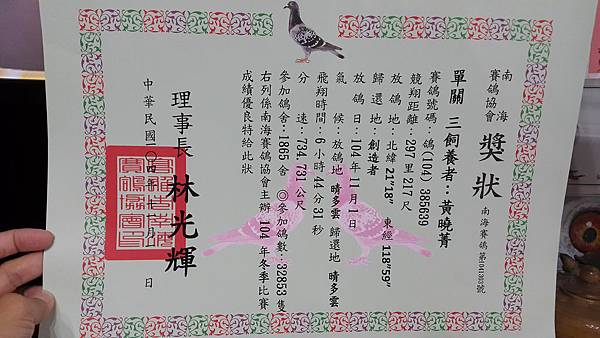 南海
賽鴿協會
獎狀
南海賽鴿 第1041303號
單關 三 飼養者：黃曉菁
賽鴿號碼：鴿(104) 385639
競翔距離：297 里 217 尺
放鴿地：北緯 21°18" 東經 118°59"
歸還地：創造者
放鴿日：104 年 11 月 1 日
氣候：放鴿地 晴多雲 歸還地 晴多雲
飛翔時間：6 小時 44 分 31 秒
分速：734.731 公尺
參加鴿舍：1865 舍 ◎參加鴿數：32853 隻
右列係南海賽鴿協會主辦 104 年冬季比賽
成績優良特給此狀
理事長 林光輝
中華民國一〇四年十一月 日